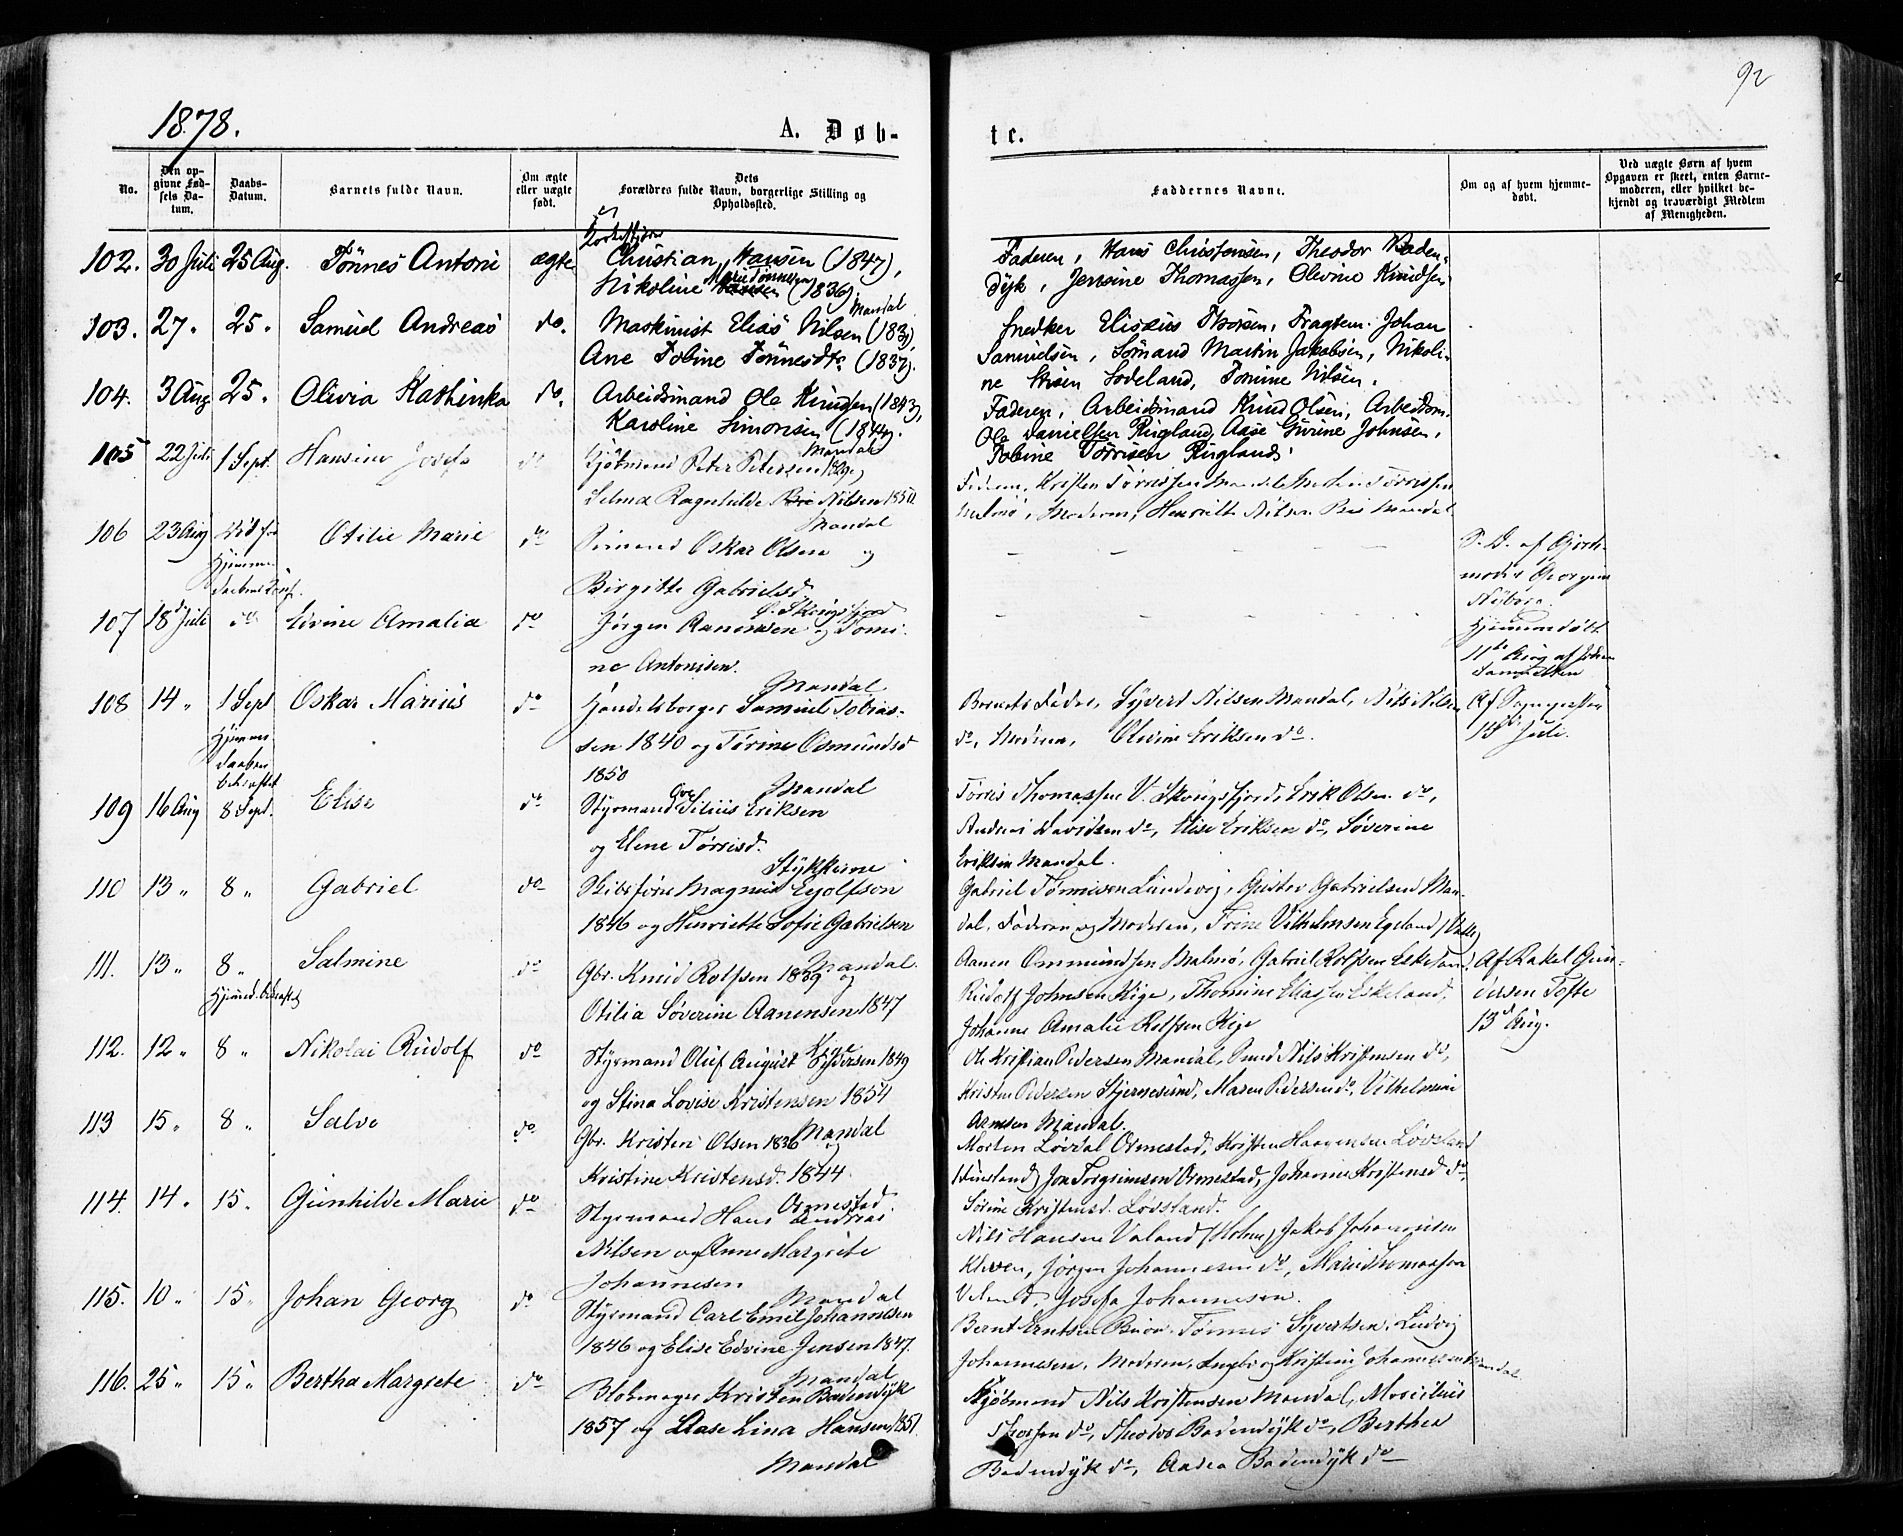 92
1878.
A. Døb-
te.
No.
Den op-
givne Fød-
sels Da-
tum.
Daabs-
Datum.
Barnets fulde Navn.
Om ægte
eller uægte
født.
Dets
Forældres fulde Navn, borgerlige Stilling og
Opholdssted.
Faddernes Navne.
Om og af hvem hjemme-
døbt.
Ved uægte Børn af hvem
Opgaven er skeet, enten Barne-
moderen, eller hvilket be-
kjendt og troværdigt Medlem
af Menigheden.
102. 30 Juli 25 Aug. Tönnes Antoni ægte
Christian Hansen (1847),
Nikoline Marie Tönnesen (1836).
Mandal
Faderen, Hans Christensen, Theodor Baden-
dyk, Jensine Thomassen, Olevine Knudsen
103. 27 " 25 " Samuel Andreas do.
Maskinist Elias Nilsen (1831),
Ane Tobine Tönnesdtr (1837).
Snedker Elisæus Thorsen, Fragtem. Johan
Samuelsen, Sömand Martin Jakobsen, Nikoli-
ne Ihsen Sodeland, Tomine Nilsen.
104. 3 Aug 25 " Olivia Kathinka do.
Arbeidsmand Ole Knudsen (1843),
Karoline Simonsen (1844).
Mandal
Faderen, Arbeidsmand Knud Olsen, Arbeidsm.
Ole Danielsen Rugland, Aase Gurine Johnsen,
Tobine Tørrisen Ruglands.
105 22 Juli 1 Sept. Hansine Josefa do
Kjøbmand Peter Petersen
Selma Ragnhilde Nilsen 1850
Mandal
106 23 Aug Død før
Hjemme-
Otilie Marie do
Sömand Oskar Olsen og
Birgitte Gabrielsd.
107 18d Juli do Edvine Amalia do
Jörgen Aanensen og Tomi-
ne Antonisen.
Mandal
Hjemmedøbt
11te Aug af
108 14 " 1 Sept Oskar Marius do
Handelsborger Samuel Tobias-
sen 1840 og Tørine Osmundsd
1850
Mandal
Barnets Fader, Syvert Nilsen Mandal, Nils Nilsen
do, Moderen, Olivine Eriksen do.
Af Sognepresten
18de Juli.
Hjemme-
daaben
bekræftet
109 16 Aug 8 Sept. Elise do
Styrmand Ove Silius Eriksen
og Elene Tørrisd.
Tørris Thomassen V. Skogsfjord, Erik Olsen do,
Andreas Davidsen do, Elise Eriksen do, Søverine
Eriksen Mandal.
110 13 " 8 " Gabriel do
Skibsfører Magnus Eyolfson
1846 og Henriette Sofie Gabrielsen
Mandal.
Gabriel Tönnesen Lundevig, Gustav Gabrielsen Man-
dal, Faderen og Moderen, Trine Vilhelmsen Egeland (Valle)
111. 13 " 8 " Salmine do
Hjemmed. bekræftet
Gbr. Knud Rolfsen 1839 og
Otilia Søverine Aanensen 1847
Aanen Ommundsen Malmø, Gabriel Rolfsen Eskeland,
Rudolf Johnsen Kige, Thomine Eliassen Eskeland,
Johanne Amalie Rolfsen Kige
Af Rakel Gun-
dersen Tofte
13d Aug.
112. 12 " 8 " Nikolai Rudolf do
Styrmand Oluf August Pedersen 1849
og Stina Lovise Kristensen 1854
Mandal
Ole Kristian Pedersen Mandal, Smed Nils Kristensen do,
Kristen Pedersen Stjernesund, Maren Pedersen do, Vilhelmine
Arnesen Mandal.
113 15 " 8 " Salve do
Gbr. Kristen Olsen 1836 og
Kristine Kristensd. 1844.
Ormestad.
Morten Løvdal Ormestad, Kristen Haavensen Løvsland
(Finsland), Jon Torgrimsen Ormestad, Johanne Kristensd do,
Sørine Kristensd. Løvsland.
114. 14 " 15 " Gunhilde Marie do
Styrmand Hans Andreas
Nilsen og Anne Margrete
Johannesen
Mandal
Nils Hansen Valand (Holme), Jakob Johannesen
Kleven, Jörgen Johannesen do, Marie Thomassen
Valand, Josefa Johannesen.
115. 10 " 15 " Johan Georg do
Styrmand Carl Emil Johannesen
1846 og Elise Edvine Jensen 1847.
Mandal
Bernt Erntsen Buøe, Tönnes Syvertsen, Ludvig
Johannesen, Moderen, Ingeborg Kristine Johannesen Mandal.
116. 25 " 15 " Bertha Margrete do
Blokmager Kristen Badendyk
1857 og Aase Lina Hansen 1851.
Mandal
Kjøbmand Nils Kristensen Mandal, Mocitius
Thorsen do, Theodor Badendyk do, Berthea
Badendyk do, Andrea Badendyk do